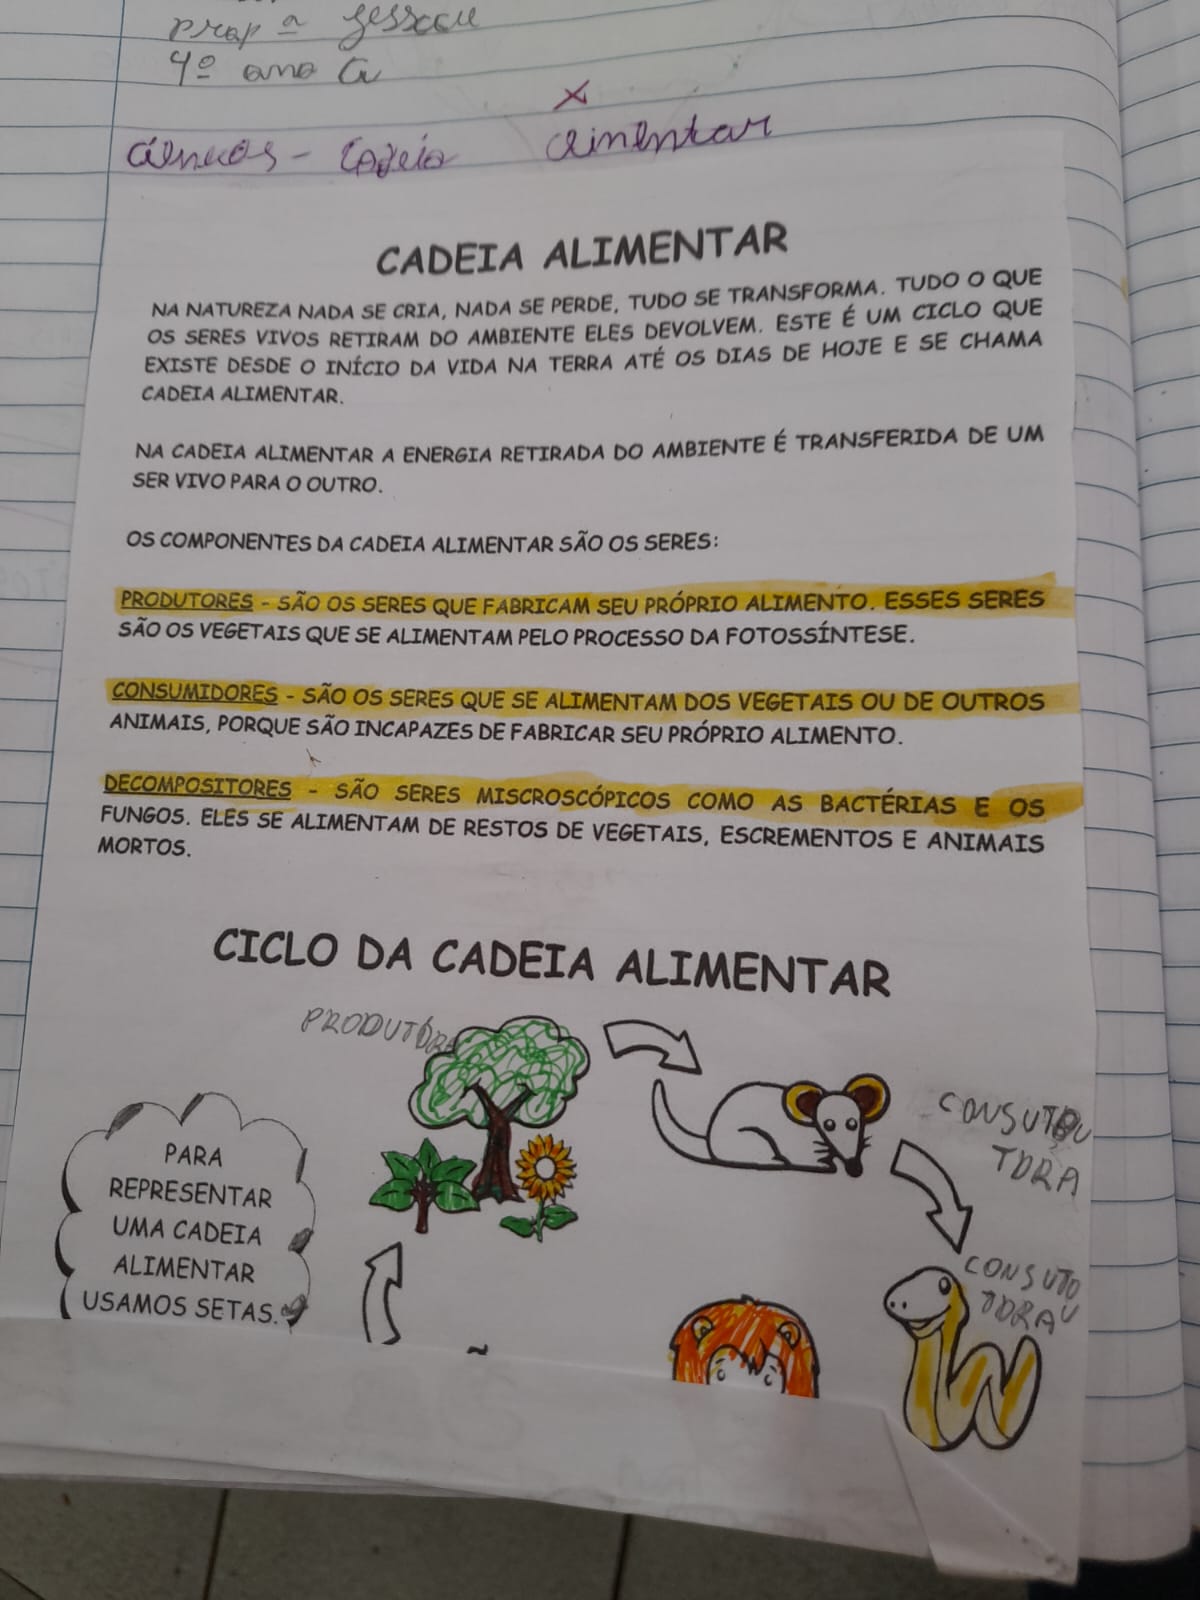 4º ano
Cadeia alimentar
CADEIA ALIMENTAR
NA NATUREZA NADA SE CRIA, NADA SE PERDE, TUDO SE TRANSFORMA. TUDO O QUE
OS SERES VIVOS RETIRAM DO AMBIENTE ELES DEVOLVEM. ESTE É UM CICLO QUE
EXISTE DESDE O INÍCIO DA VIDA NA TERRA ATÉ OS DIAS DE HOJE E SE CHAMA
CADEIA ALIMENTAR.
NA CADEIA ALIMENTAR A ENERGIA RETIRADA DO AMBIENTE É TRANSFERIDA DE UM
SER VIVO PARA O OUTRO.
OS COMPONENTES DA CADEIA ALIMENTAR SÃO OS SERES:
PRODUTORES - SÃO OS SERES QUE FABRICAM SEU PRÓPRIO ALIMENTO. ESSES SERES
SÃO OS VEGETAIS QUE SE ALIMENTAM PELO PROCESSO DA FOTOSSÍNTESE.
CONSUMIDORES - SÃO OS SERES QUE SE ALIMENTAM DOS VEGETAIS OU DE OUTROS
ANIMAIS, PORQUE SÃO INCAPAZES DE FABRICAR SEU PRÓPRIO ALIMENTO.
DECOMPOSITORES - SÃO SERES MISCROSCÓPICOS COMO AS BACTÉRIAS E OS
FUNGOS. ELES SE ALIMENTAM DE RESTOS DE VEGETAIS, ESCREMENTOS E ANIMAIS
MORTOS.
CICLO DA CADEIA ALIMENTAR
PARA
REPRESENTAR
UMA CADEIA
ALIMENTAR
USAMOS SETAS.
TORA